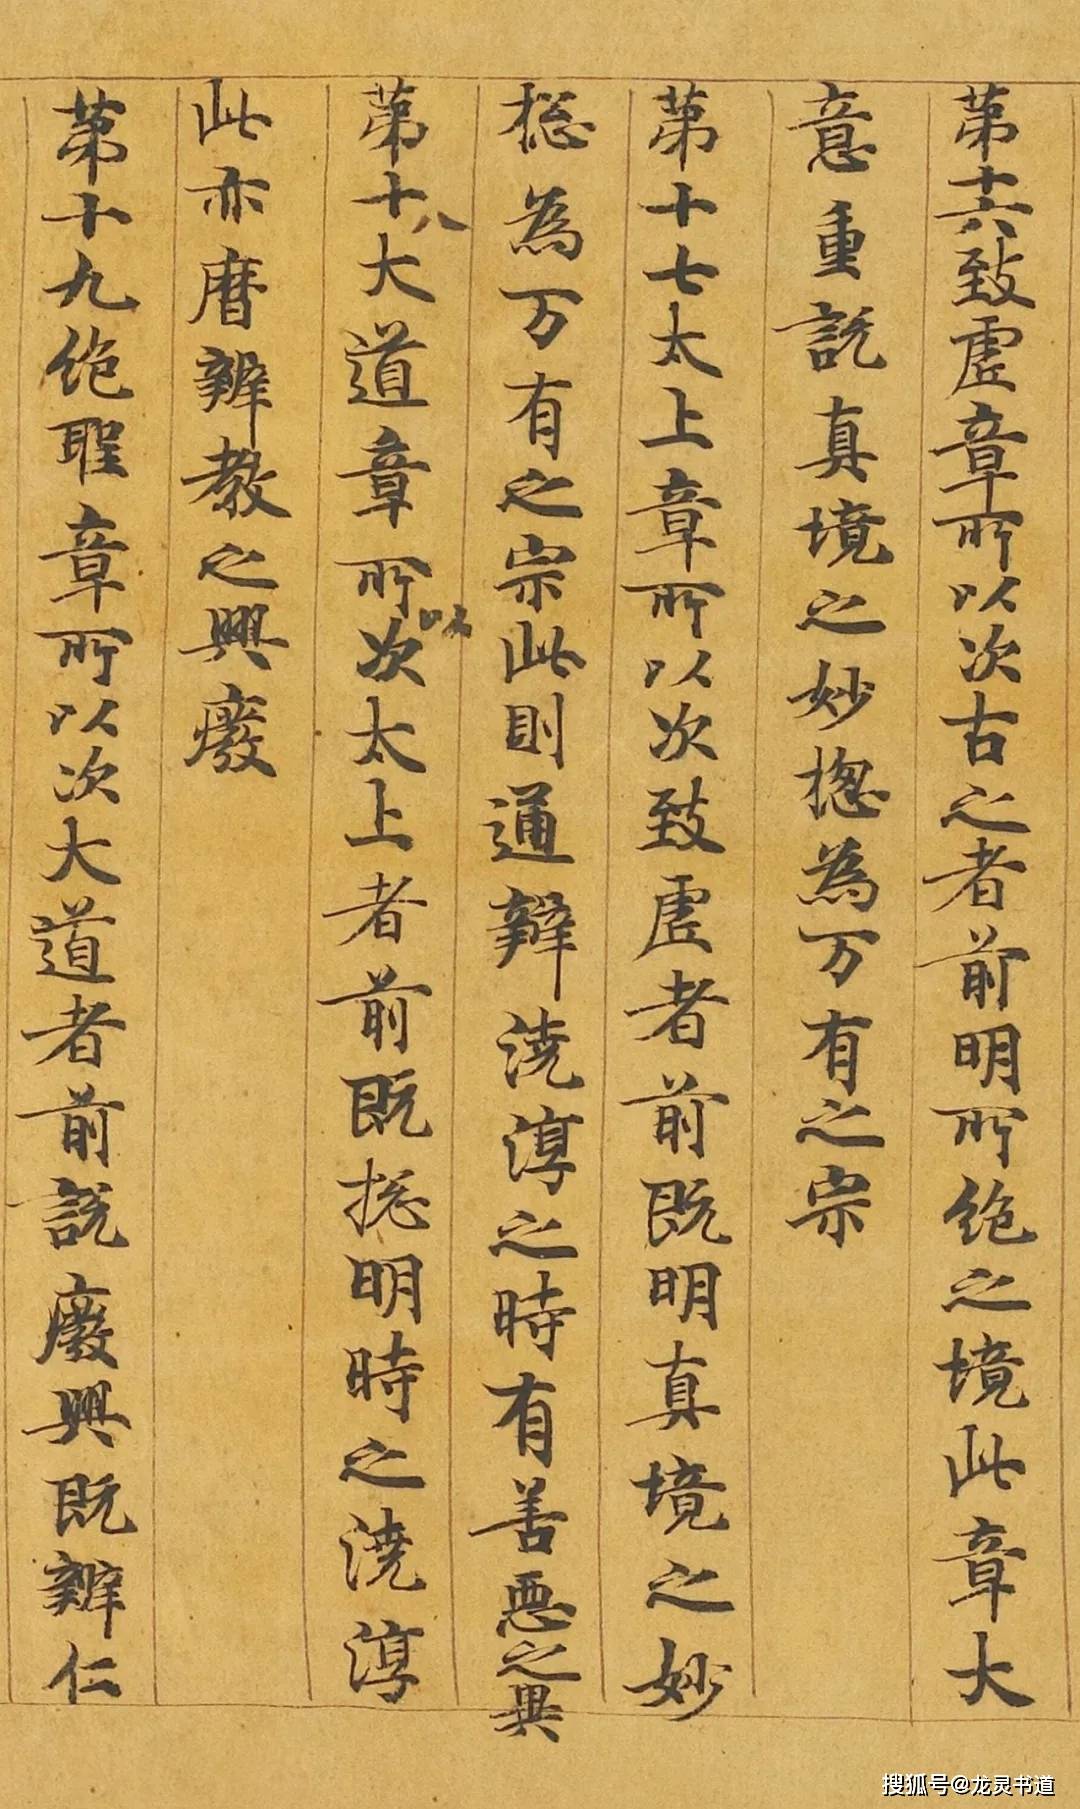 苐十六致虚章所以次古之者前明所绝之境此章大
意重説真境之妙揔為万有之宗
苐十七太上章所以次致虚者前既明真境之妙
揔為万有之宗此則通辯澆淳之時有善惡之異
苐十八大道章所以次太上者前既揔明時之澆淳
此亦曆辨教之興癈
苐十九绝聖章所以次大道者前説癈興既辨仁
搜狐号@龙灵书道